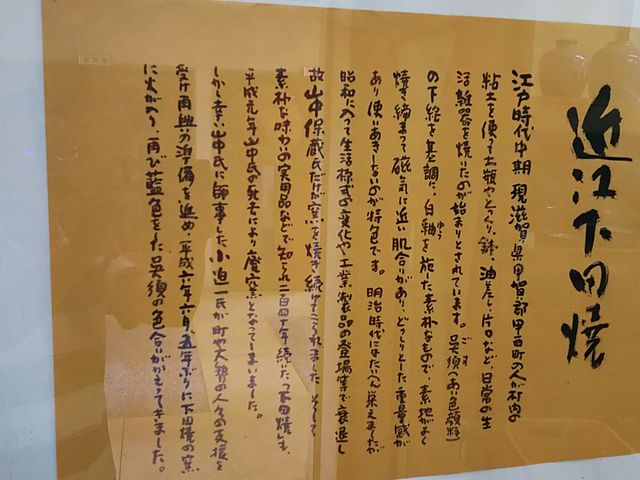 近江下田焼
江戸時代中期 現滋賀県甲賀郡甲西町の人が村内の
粘土を使って土瓶やとっくり、鉢、油差し、片口など、日常の生
活雑器を焼いたのが始まりとされています。呉須(あい色顔料)
ごす
の下絵を基調に、白釉を施した素朴なもので、素地がよく
ゆう
焼き締まって磁気に近い肌合いがあり、どっしりとした重量感が
あり使いあきしないのが特色です。明治時代にはたいへん栄えましたが
昭和に入って生活様式の変化や工業製品の登場等で衰退し
故山中保蔵氏だけが窯を焼き続けてこられました。そして
素朴な味わいの実用品などで知られ二百四十年続いた「下田焼」も、
平成元年山中氏の死去により廃窯となってしまいました。
しかし幸い山中氏に師事した小迫一氏が町や大勢の人々の支援を
受け再興の準備を進め、平成六年六月、五年ぶりに下田焼の窯
に火が入り、再び藍色をした呉須の色合いがかえってきました。